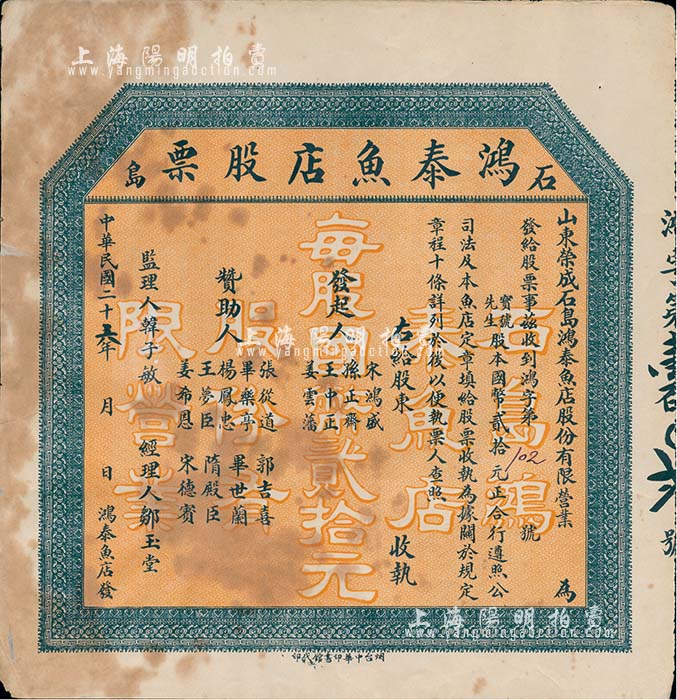 上海陽明拍賣
www.yangmingauction.com
石島鴻泰魚店股票
山東榮成石島鴻泰魚店股份有限營業 為
發給股票事茲收到鴻字第 102 號
寶號
先生 股本國幣貳拾元正合行遵照公
司法及本魚店定章填給股票收執為據關於規定
章程十條詳列於後以便執票人查照
右給股東 收執
發起人 宋鴻盛 孫正齋 王中正 姜雲藩
贊助人 張從道 畢樂亭 楊鳳忠 王夢臣 姜希恩 郭吉喜 畢世蘭 隋殿臣 宋德賓
監理人韓子敏 經理人鄒玉堂
中華民國二十六年 月 日 鴻泰魚店發
每股國幣貳拾元
石島鴻泰魚店股份有限營業
烟台中華印書館代印
上海陽明拍賣
www.yangmingauction.com
上海陽明拍賣
www.yangmingauction.com